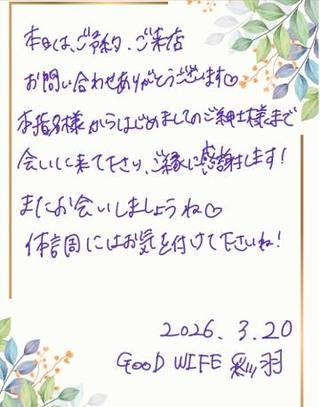 本日は、ご予約、ご来店
お問い合わせありがとうございます♡
本指名様からはじめましてのご紳士様まで
会いに来て下さり、ご縁に感謝します!
またお会いしましょうね♡
体調にはお気を付けて下さいね!
2026.3.20
GOOD WIFE 彩羽